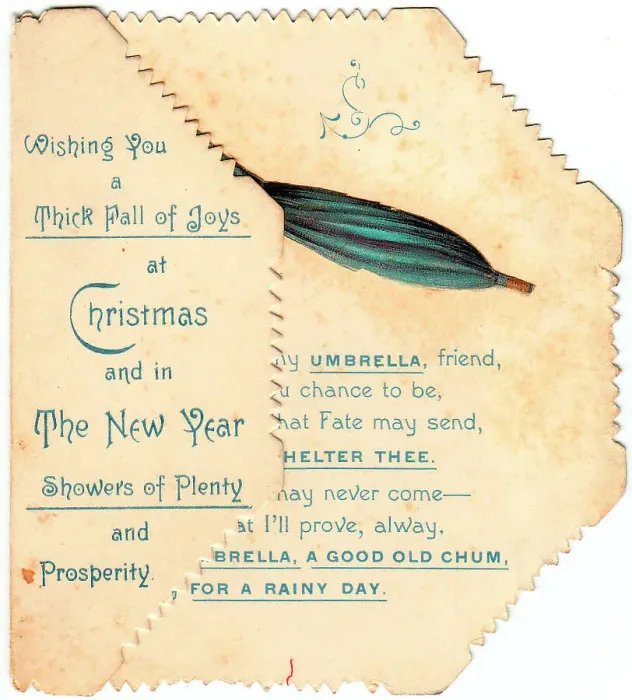 Wishing You
a
Thick Fall of Joys
at
Christmas
and in
The New Year
Showers of Plenty
and
Prosperity.
ny UMBRELLA, friend,
u chance to be,
hat Fate may send,
HELTER THEE.
nay never come—
at I'll prove, alway,
BRELLA, A GOOD OLD CHUM,
, FOR A RAINY DAY.